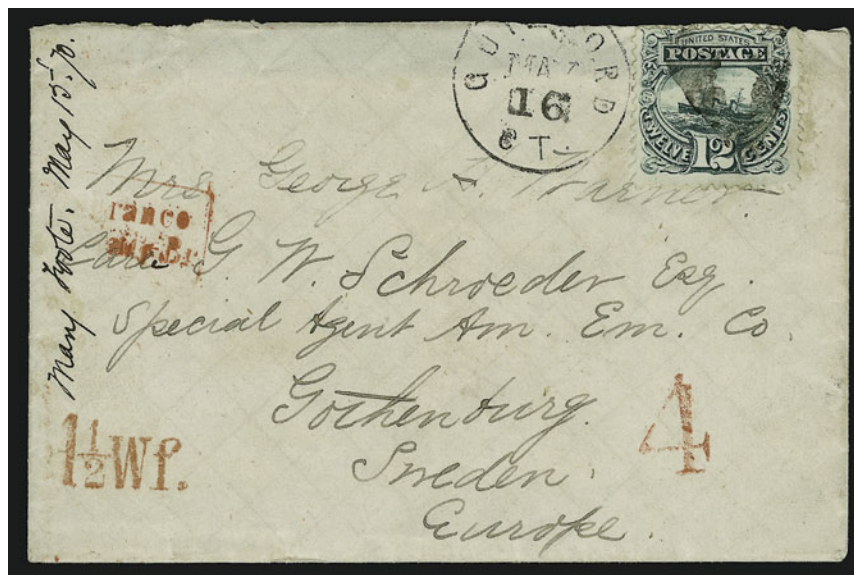 Mary Foote. May 15-70.
GUILFORD
MAY
16
CT.
UNITED STATES
POSTAGE
TWELVE 12 CENTS
Mrs George H. Warner
ranco
Care G. W. Schroeder Esq.
Special Agent Am. Em. Co.
Gothenburg.
Sweden.
Europe.
1½Wf.
4